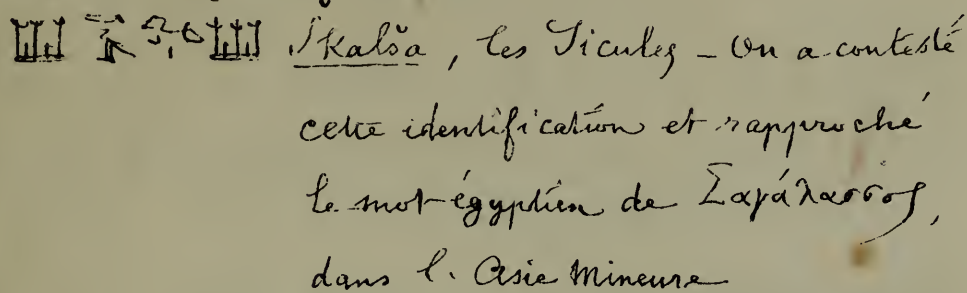 Škalša, les Sicules – On a contesté
cette identification et rapproché
le mot égyptien de Σαγάλασσος,
dans l'Asie Mineure